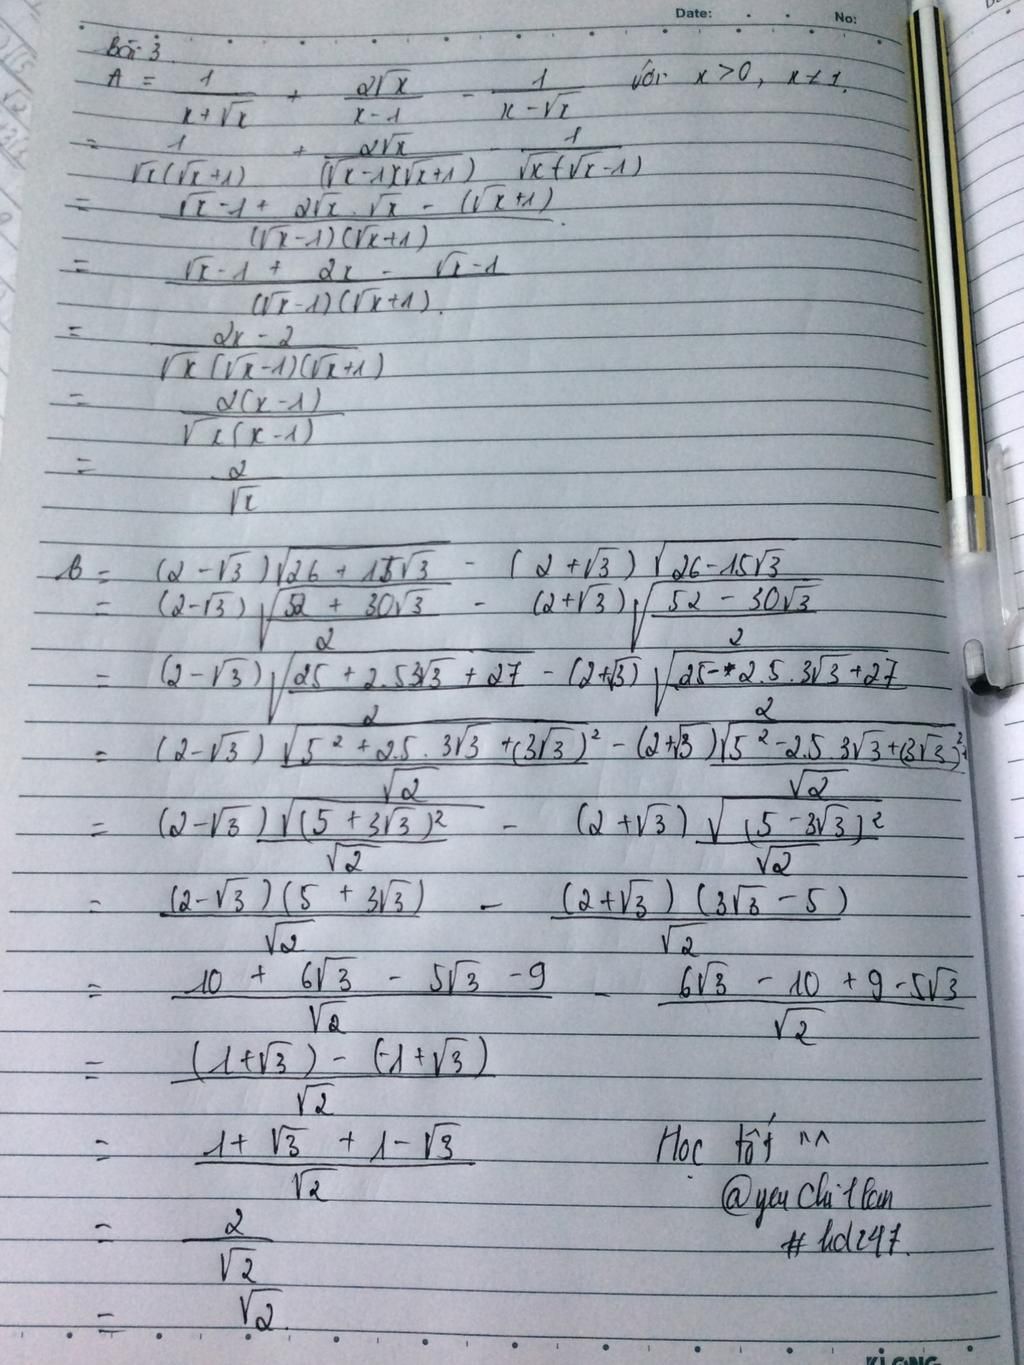 Date: No:
Bài 3
A = 1/(x+√x) + 2√x/(x-1) - 1/(x-√x) với x>0, x≠1.
= 1/(√x(√x+1)) + 2√x/((√x-1)(√x+1)) - 1/(√x(√x-1))
= (√x-1 + 2√x.√x - (√x+1))/((√x-1)(√x+1))
= (√x-1 + 2x - √x-1)/((√x-1)(√x+1)).
= (2x-2)/(√x(√x-1)(√x+1))
= 2(x-1)/(√x(x-1))
= 2/√x
B = (2-√3)√(26+15√3) - (2+√3)√(26-15√3)
= (2-√3)√((52+30√3)/2) - (2+√3)√((52-30√3)/2)
= (2-√3)√((25+2.5.3√3+27)/2) - (2+√3)√((25-2.5.3√3+27)/2)
= (2-√3)√(5²+2.5.3√3+(3√3)²)/√2 - (2+√3)√(5²-2.5.3√3+(3√3)²)/√2
= (2-√3)√((5+3√3)²)/√2 - (2+√3)√((5-3√3)²)/√2
= (2-√3)(5+3√3)/√2 - (2+√3)(3√3-5)/√2
= (10+6√3-5√3-9)/√2 - (6√3-10+9-5√3)/√2
= ((1+√3)-(-1+√3))/√2
= (1+√3+1-√3)/√2
Học tốt ^^
= 2/√2
#hd247.
= √2.